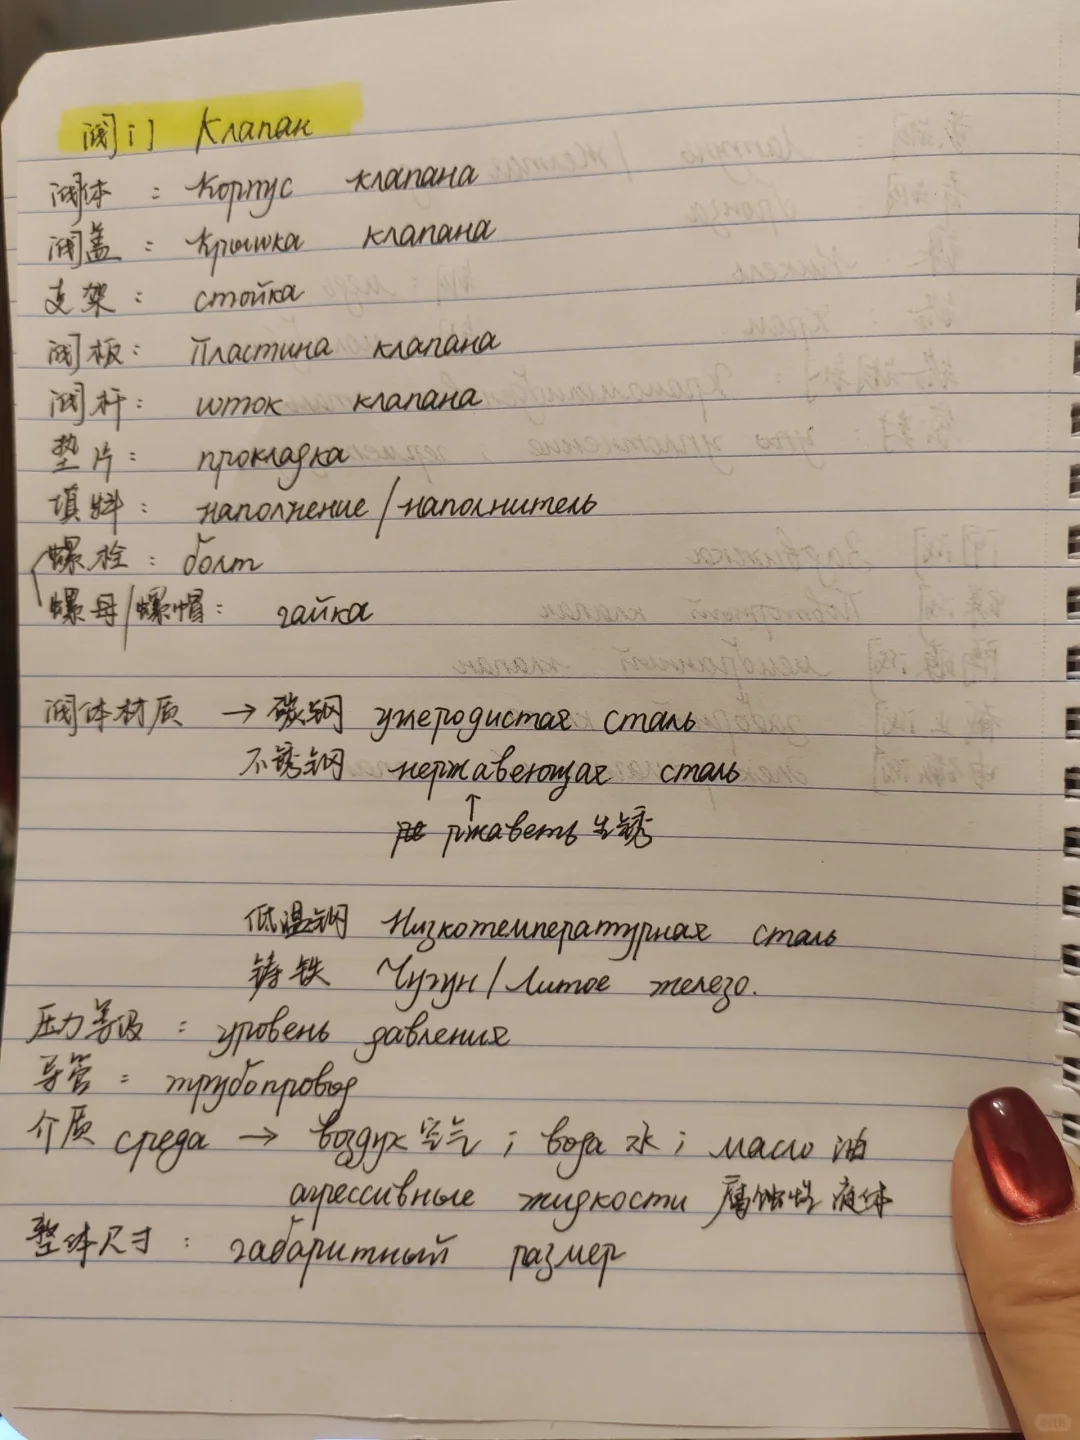 阀门 Клапан
阀体 : Корпус клапана
阀盖 : Крышка клапана
支架 : стойка
阀板 : Пластина клапана
阀杆 : шток клапана
垫片 : прокладка
填料 : наполнение / наполнитель
螺栓 : болт
螺母/螺帽 : гайка
阀体材质 → 碳钢 углеродистая сталь
不锈钢 нержавеющая сталь
↑
ржаветь 生锈
低温钢 Низкотемпературная сталь
铸铁 Чугун / Литое железо.
压力等级 : уровень давления
导管 : трубопровод
介质 среда → воздух 空气 ; вода 水 ; масло 油
агрессивные жидкости 腐蚀性液体
整体尺寸 : габаритный размер